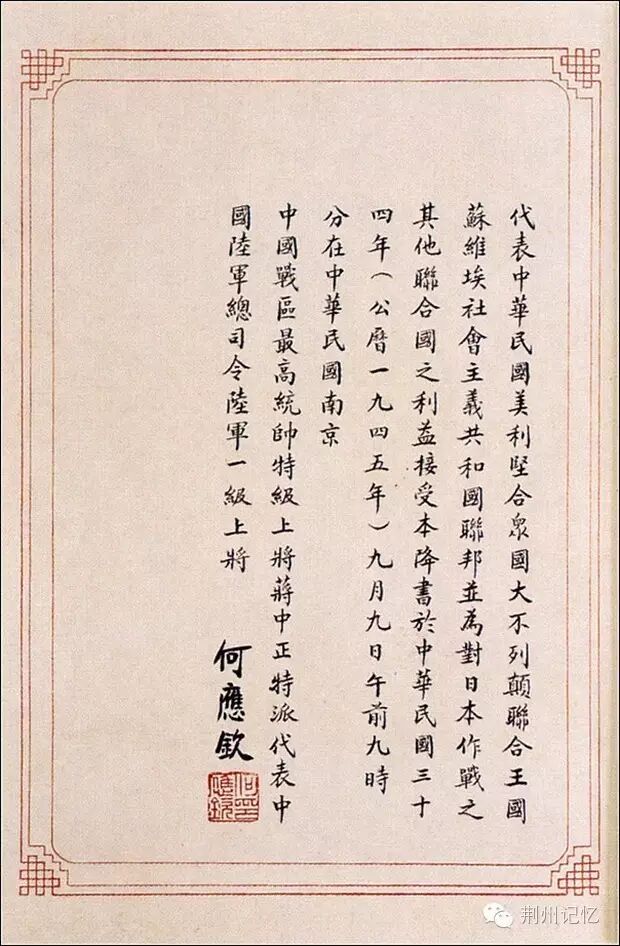 代表中華民國美利堅合衆國大不列顛聯合王國
蘇維埃社會主義共和國聯邦並為對日本作戰之
其他聯合國之利益接受本降書於中華民國三十
四年（公曆一九四五年）九月九日午前九時
分在中華民國南京
中國戰區最高統帥特級上將蔣中正特派代表中
國陸軍總司令陸軍一級上將
何應欽
何應欽印
荆州记忆